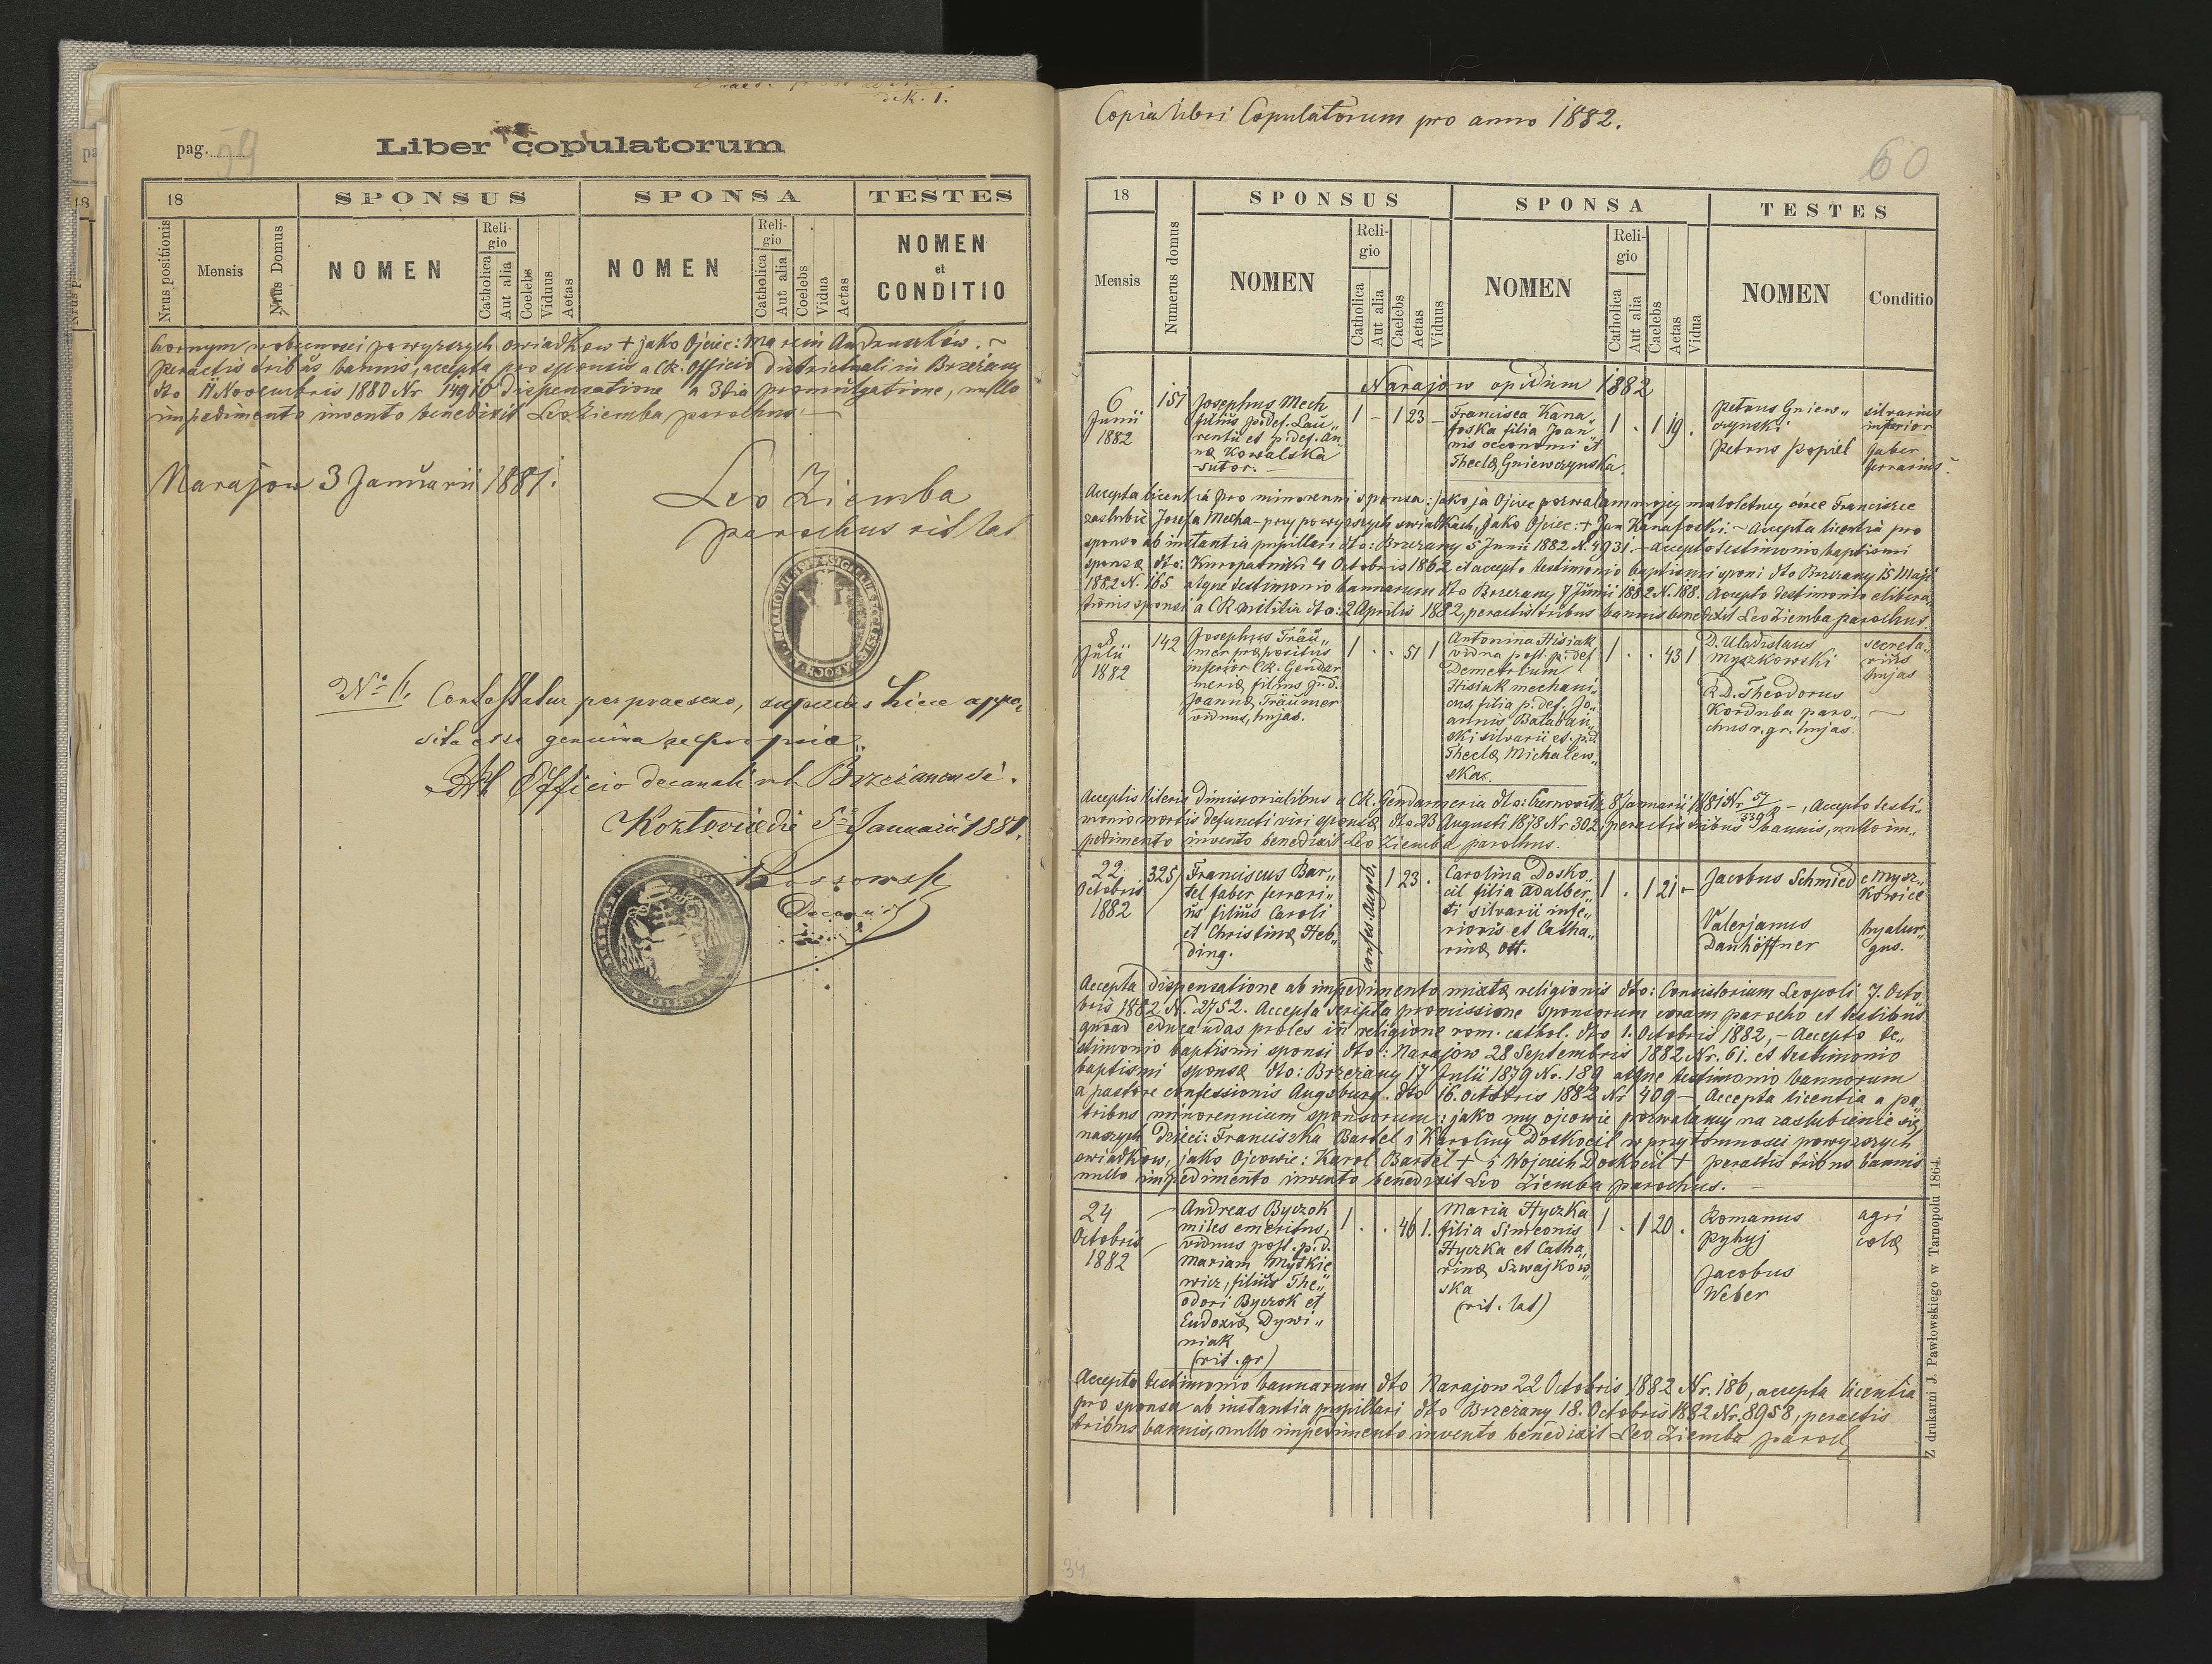 dek. 1.
pag. 59
Liber copulatorum
18
SPONSUS
SPONSA
TESTES
Nrus positionis
Mensis
Nrus Domus
NOMEN
Religio
Catholica
Aut alia
Coelebs
Viduus
Aetas
NOMEN
Religio
Catholica
Aut alia
Coelebs
Vidua
Aetas
NOMEN
et
CONDITIO
powyzszych swiadkow + jako Ojciec: Marcin Andruszków. ~
peractis tribus bannis, accepta pro sponsis a CK. Officio districtuali in Brzeżany
dto 11 Novembris 1880 Nr 14910 dispensatione a 3tia promulgatione, nullo
impedimento invento benedixit Leo Ziemba parochus. —
Narajow 3 Januarii 1881.
Leo Ziemba
parochus rit lat
No 1. Contestatur per praesens, superius hicce appo„
sita esse genuina ac propria.
Ab Officio decanali r. l. Brzeżanensi.
Kozłovie die 5 Januarii 1881.
Decanus
Copia libri Copulatorum pro anno 1882.
60
18
SPONSUS
SPONSA
TESTES
Mensis
Numerus domus
NOMEN
Religio
Catholica
Aut alia
Caelebs
Aetas
Viduus
NOMEN
Religio
Catholica
Aut alia
Caelebs
Aetas
Vidua
NOMEN
Conditio
Narajow opidum 1882
6 Junii 1882
157
Josephus Mech
filius p. def. Lau„
rentii et p. def. An„
næ Kowalska
-sutor. —
1 - 1 23 -
Francisca Kana„
foska filia Joan„
nis oeconomi et
Theclæ Gniewczynska.
1 . 1 19 .
Petrus Gniew„
czynski
silvarius
inferior
Petrus Popiel
faber
ferrarius.
Accepta licentia pro minorenni sponsa: jako ja Ojciec pozwalam mojej małoletniej córce Franciszce
zaslubić Józefa Mecha - przy powyzszych swiadkach, Jako Ojciec: + Jan Kanafoski. ~ Accepta licentia pro
sponso ab instantia pupillari dto: Brzezany 5 Junii 1882 N. 4931. - accepto testimonio baptismi
sponsæ dto: Kuropatniki 4 Octobris 1862 et accepto testimonio baptismi sponi dto Brzezany 15 Maji
1882 N. 165 atque testimonio bannorum dto Brzezany 7 Junii 1882 N. 188. Accepto testimonio elibera„
tionis sponsi a CK militia dto: 2 Aprilis 1882, peractis tribus bannis benedixit Leo Ziemba parochus.
8 Julii 1882
142
Josephus Träu„
mer præpositus
inferior CK. Gendar
meriæ filius p. d.
Joannæ Träumer
viduus, hujas.
1 . . 51 1
Antonina Hisiak
vidua post. p. def
Demetrium
Hisiak mechani„
cus, filia p. def. Jo„
annis Balaban„
ski silvarii et. p. d.
Theclæ Michalew„
ska.
1 . . 43 1
D. Uladislaus
Myszkowski
secreta„
rius
hujas
R. D. Theodorus
Korduba paro„
chus r. gr. hujas. —
Acceptis literis dimissorialibus a CK. Gendarmeria dto: Czernovitz 8 Januarii 1881 Nr. 57/339 -, Accepto testi„
monio mortis defuncti viri sponsæ dto 23 Augusti 1878 Nr 302, peractis tribus bannis, nullo im„
pedimento invento benedixit Leo Ziemba parochus.
22. Octobris 1882
325
Franciscus Bar„
tel faber ferrari„
us filius Caroli
et Christinæ Heb„
ding.
confes. Augsb.
1 23 .
Carolina Dosko„
cil filia Adalber„
ti silvarii infe„
rioris et Catha„
rinæ Ott.
1 . 1 21 -
Jacobus Schmied
e Mysz„
kowice
Valerjanus
Danhöffner
hyalur„
gus.
Accepta dispensatione ab impedimento mixtæ religionis dto: Consistorium Leopoli 7. Octo„
bris 1882 N. 2752. Accepta scripta promissione sponsorum coram parocho et testibus
quoad educandas proles in religione rom. cathol. dto 1. Octobris 1882, - Accepto te„
stimonio baptismi sponsi dto: Narajow 28 Septembris 1882 Nr. 61. et testimonio
baptismi sponsæ dto: Brzezany 17 Julii 1879 No. 189 atque testimonio bannorum
a pastore confessionis Augsburg. dto 16. Octobris 1882 Nr 409 - Accepta licentia a pa„
tribus minorennium sponsorum: jako my ojcowie pozwalamy na zaslubienie się
naszych Dzieci: Franciszka Bartel i Karoliny Doskocil w przytomnosci powyzszych
swiadkow, jako Ojcowie: Karol Bartel + i Wojciech Doskocil + peractis tribus bannis
nullo impedimento invento benedixit Leo Ziemba parochus. —
24 Octobris 1882
Andreas Byczok
miles emeritus,
viduus post. p. d.
Mariam Myskie
wicz, filius The„
odori Byczok et
Eudoxiæ Dywi„
niak
(rit. gr)
1 . . 46 1.
Maria Hyczka
filia Simeonis
Hyczka et Catha„
rinæ Szwajkow„
ska
(rit. lat)
1 . 1 20 .
Romanus
Pyhyj
agri
colæ
Jacobus
Weber
Accepto testimonio bannorum dto Narajow 22 Octobris 1882 Nr. 186, accepta licentia
pro sponsa ab instantia pupillari dto Brzezany 18. Octobris 1882 Nr. 8958, peractis
tribus bannis, nullo impedimento invento benedixit Leo Ziemba paroch
Z drukarni J. Pawłowskiego w Tarnopolu 1864.
34